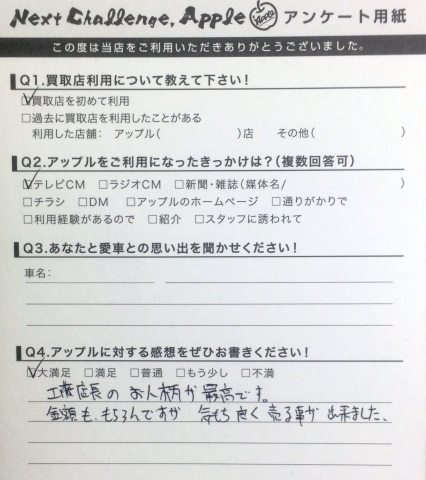 Next Challenge, Apple Apple アンケート用紙
この度は当店をご利用いただきありがとうございました。
Q1.買取店利用について教えて下さい!
☑買取店を初めて利用
□過去に買取店を利用したことがある
利用した店舗: アップル( )店 その他( )
Q2.アップルをご利用になったきっかけは?(複数回答可)
☑テレビCM □ラジオCM □新聞・雑誌(媒体名/ )
□チラシ □DM □アップルのホームページ □通りがかりで
□利用経験があるので □紹介 □スタッフに誘われて
Q3.あなたと愛車との思い出を聞かせください!
車名:
Q4.アップルに対する感想をぜひお書きください!
☑大満足 □満足 □普通 □もう少し □不満
工藤店長のお人柄が最高です。
金額も、もちろんですが 気もち良く売る事が出来ました、